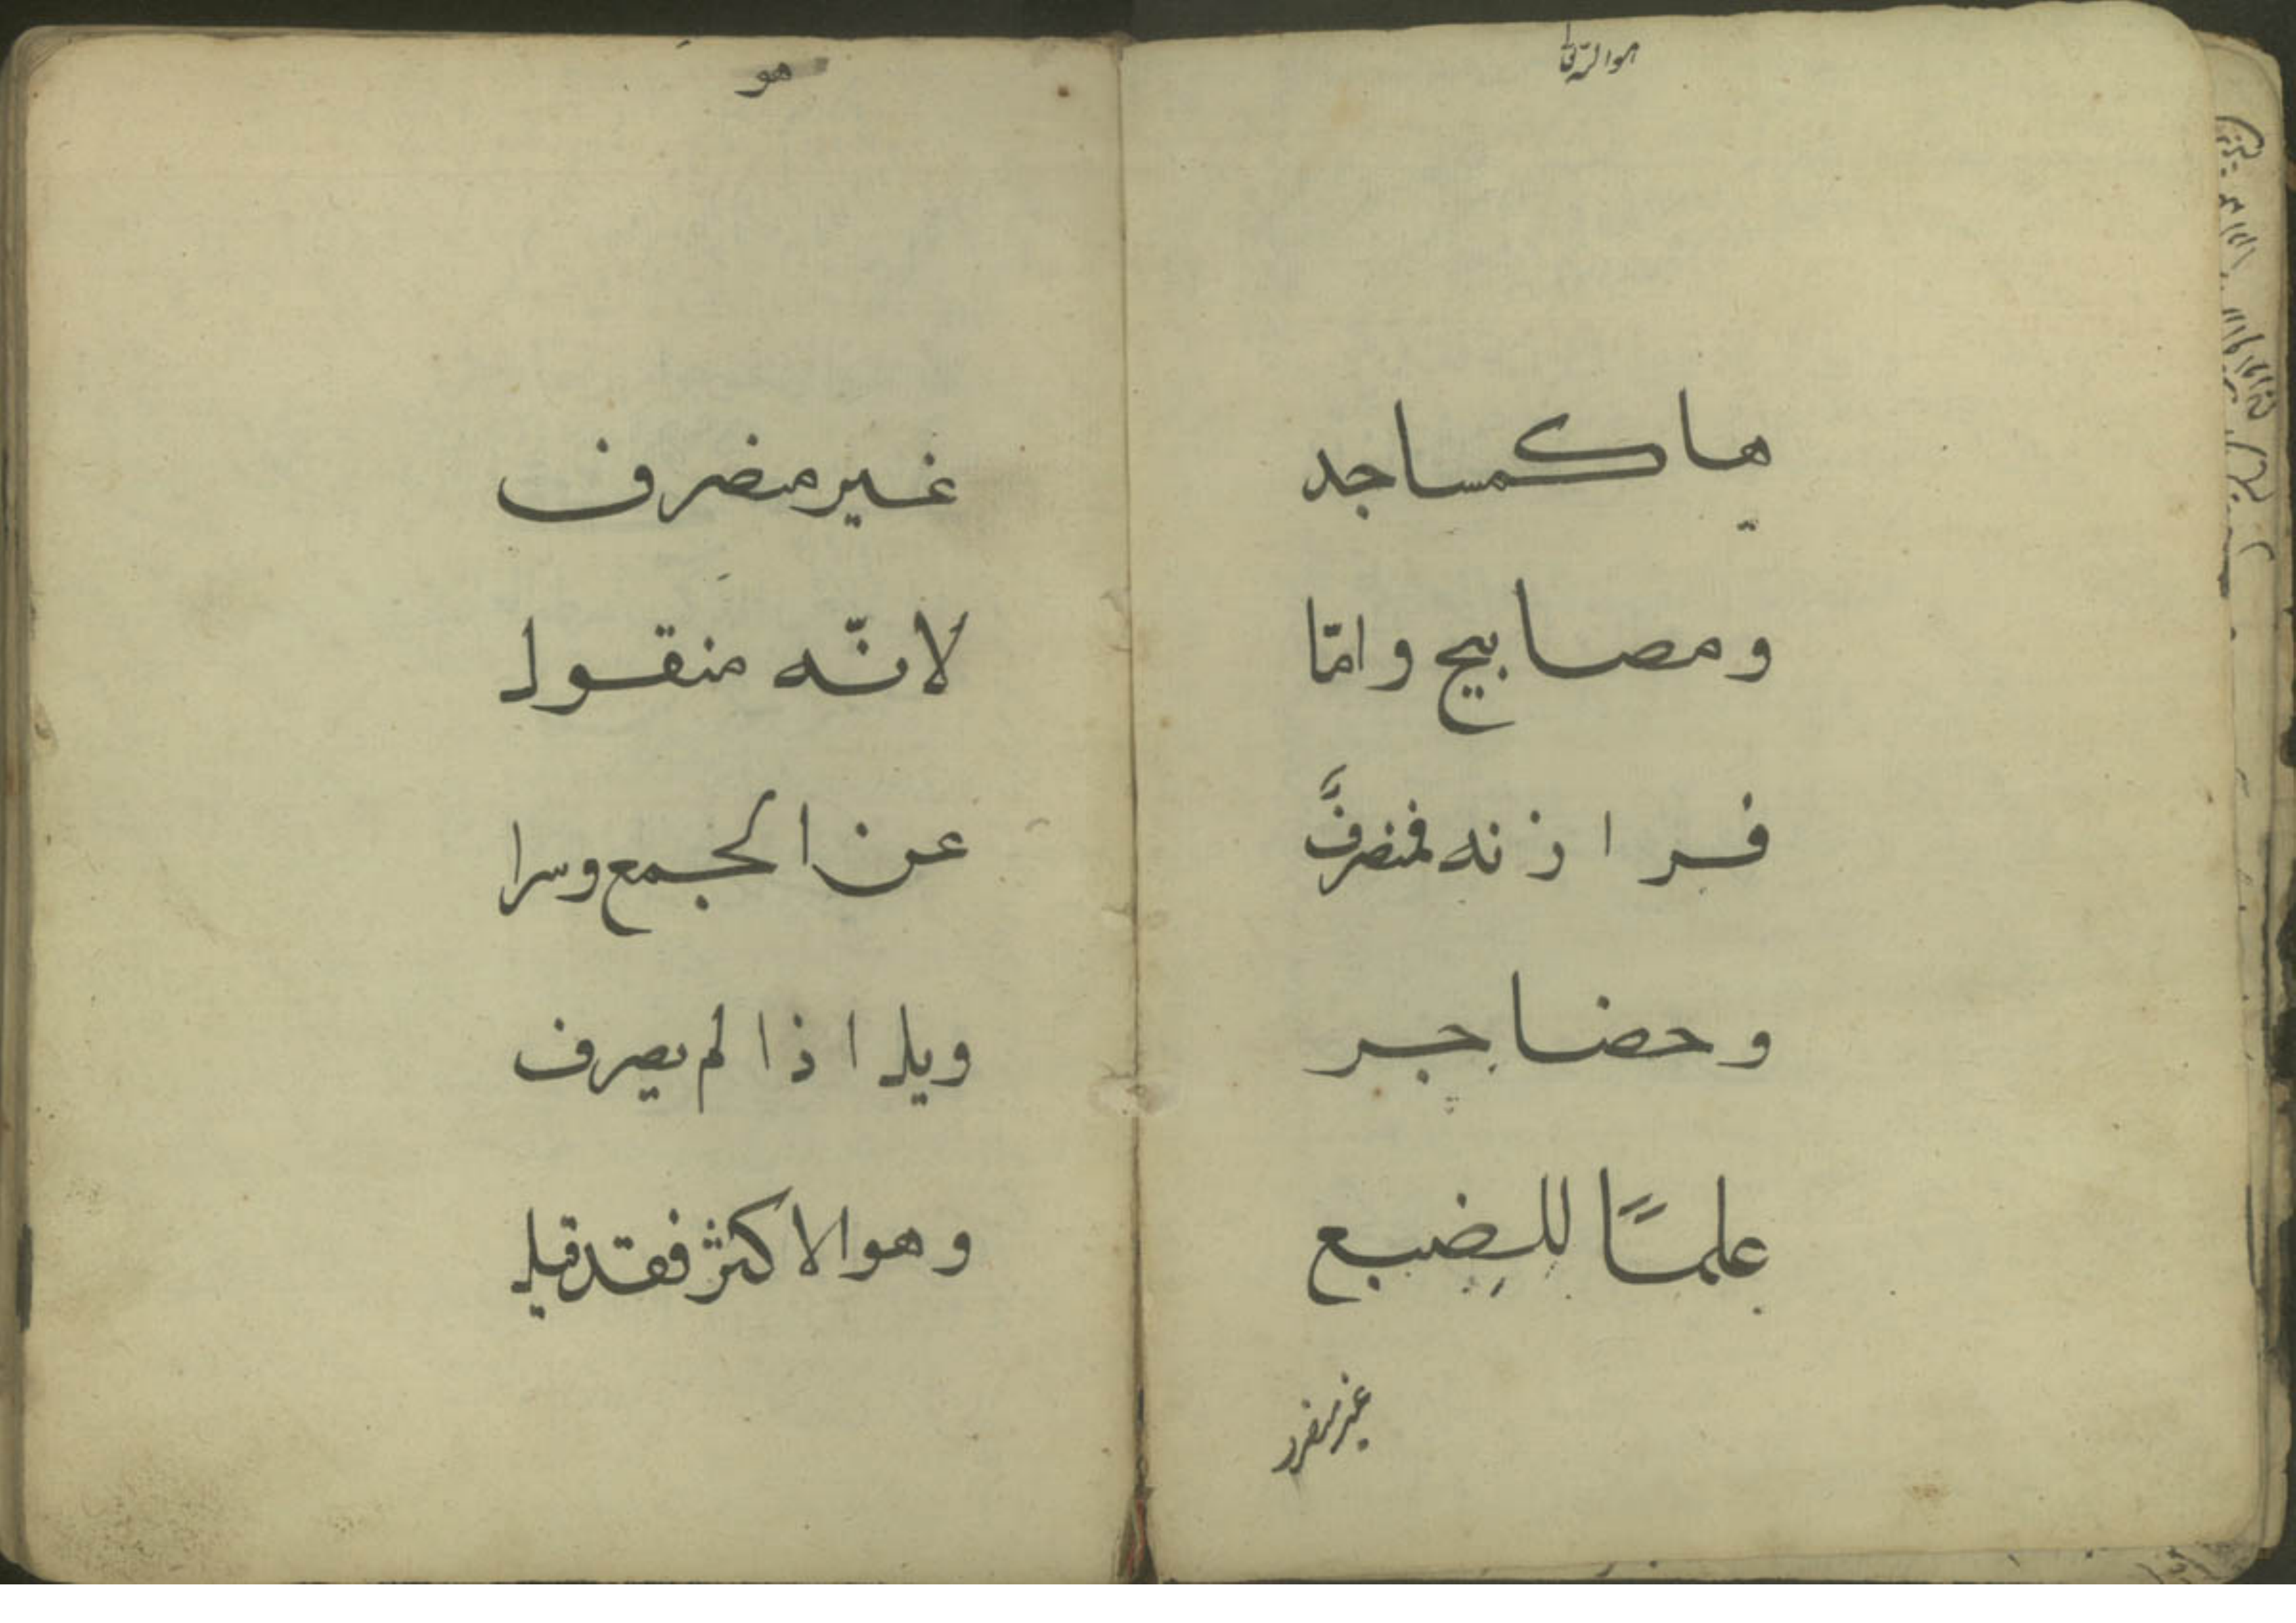 هو الرزاق
هاء كمساجد
ومصابيح وامّا
فرازنه فمنصرفٌ
وحضاجر
علمًا للضبع
غير منصر
هو
غير منصرف
لانّه منقول
عن الجمع وسرا
ويل اذا لم يصرف
وهو الاكثر فقد قيل